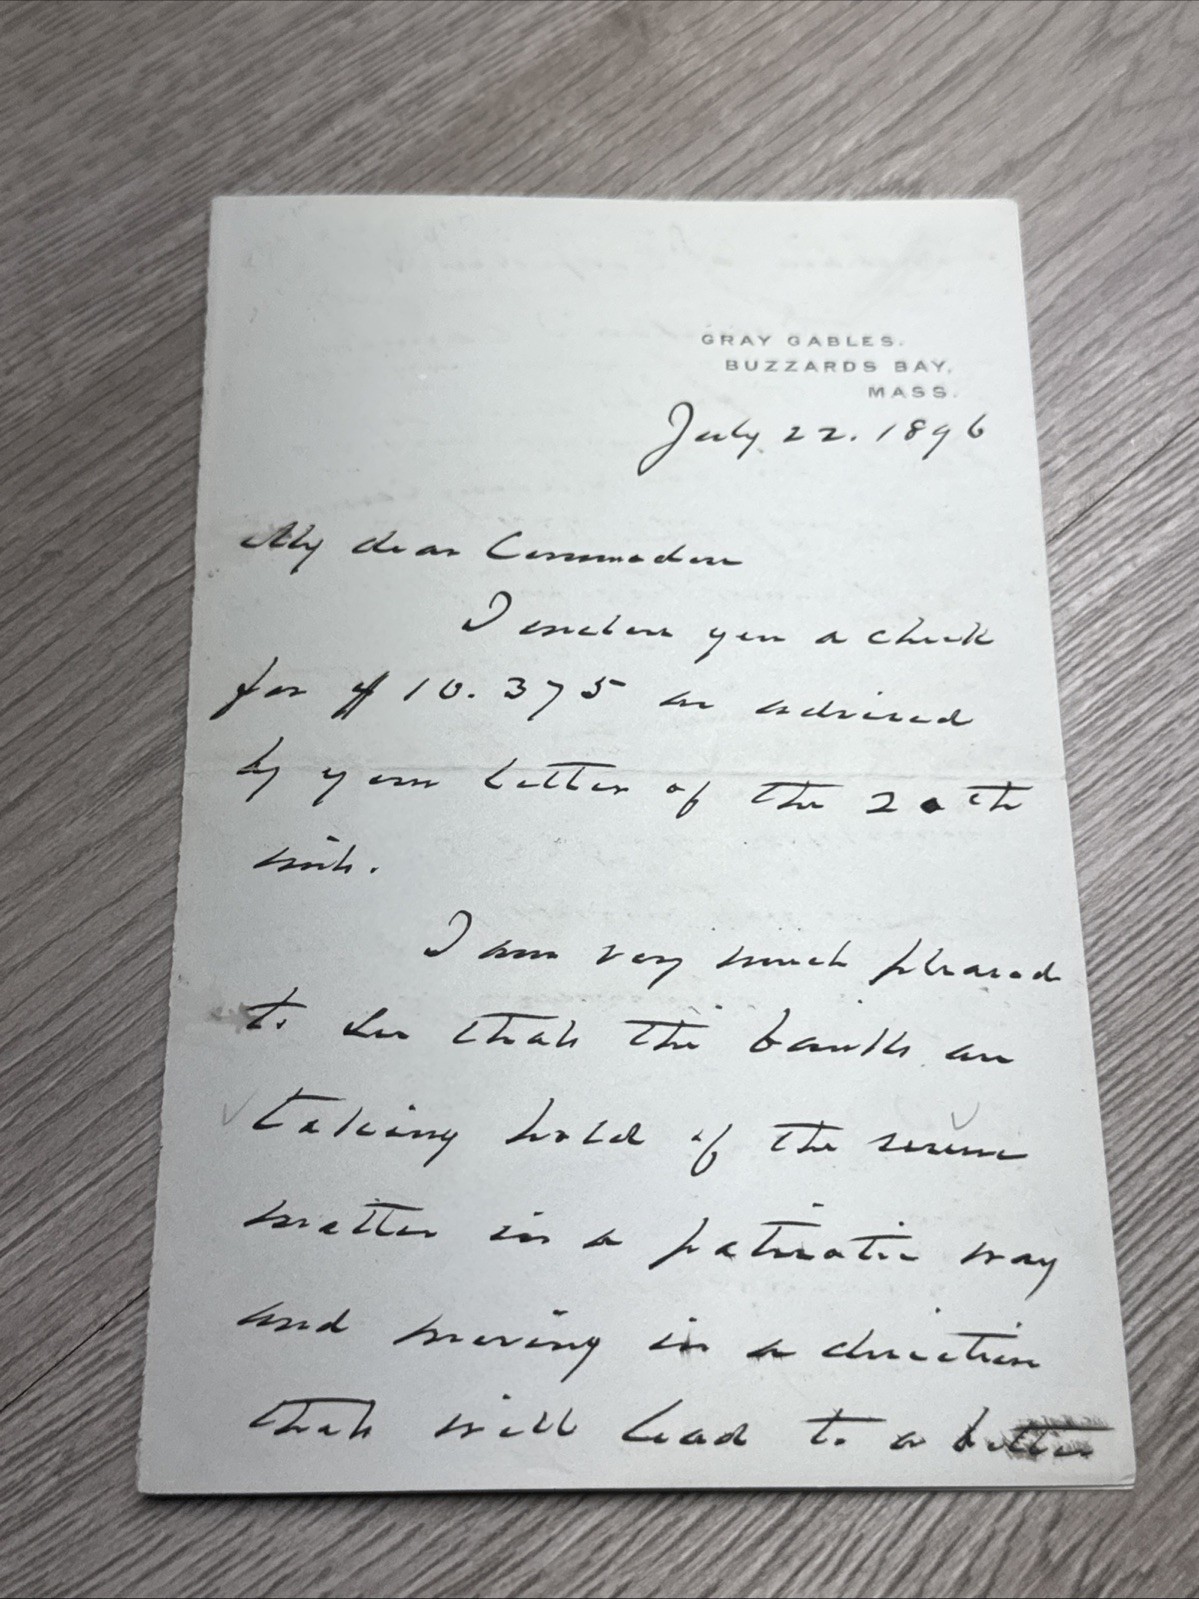 GRAY GABLES.
BUZZARDS BAY,
MASS.
July 22. 1896
My dear Commodore
I enclose you a check
for $10.375 as advised
by your letter of the 20th
inst.
I am very much pleased
to see that the banks are
taking hold of the
matter in a patriotic way
and moving in a direction
that will lead to a better